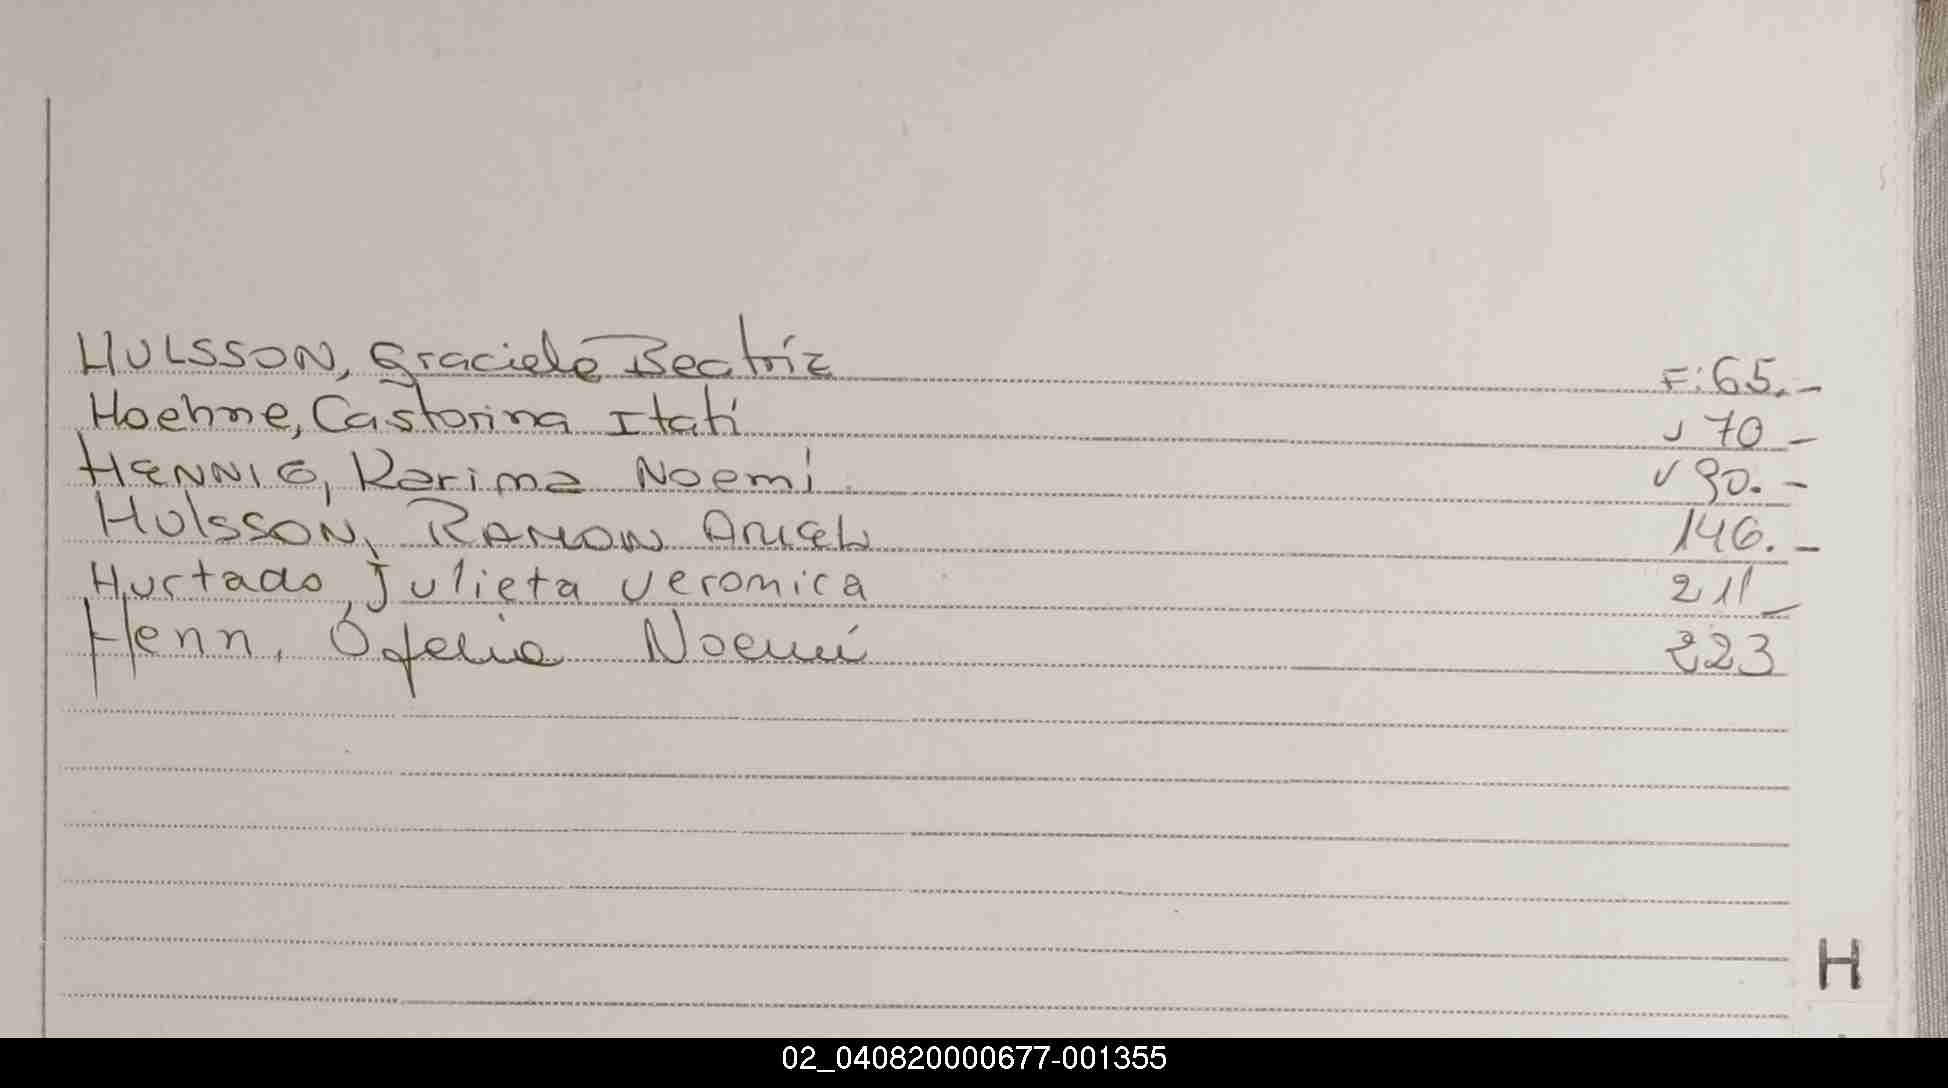 HULSSON, Graciela Beatriz F: 65.-
Hoehne, Castorina Itatí 70 -
HENNIG, Karima Noemi 90. -
HULSSON, RAMON ARIEL 146. -
Hurtado, Julieta Veronica 211 -
Henn, Ofelia Noemí 223
H
02_040820000677-001355